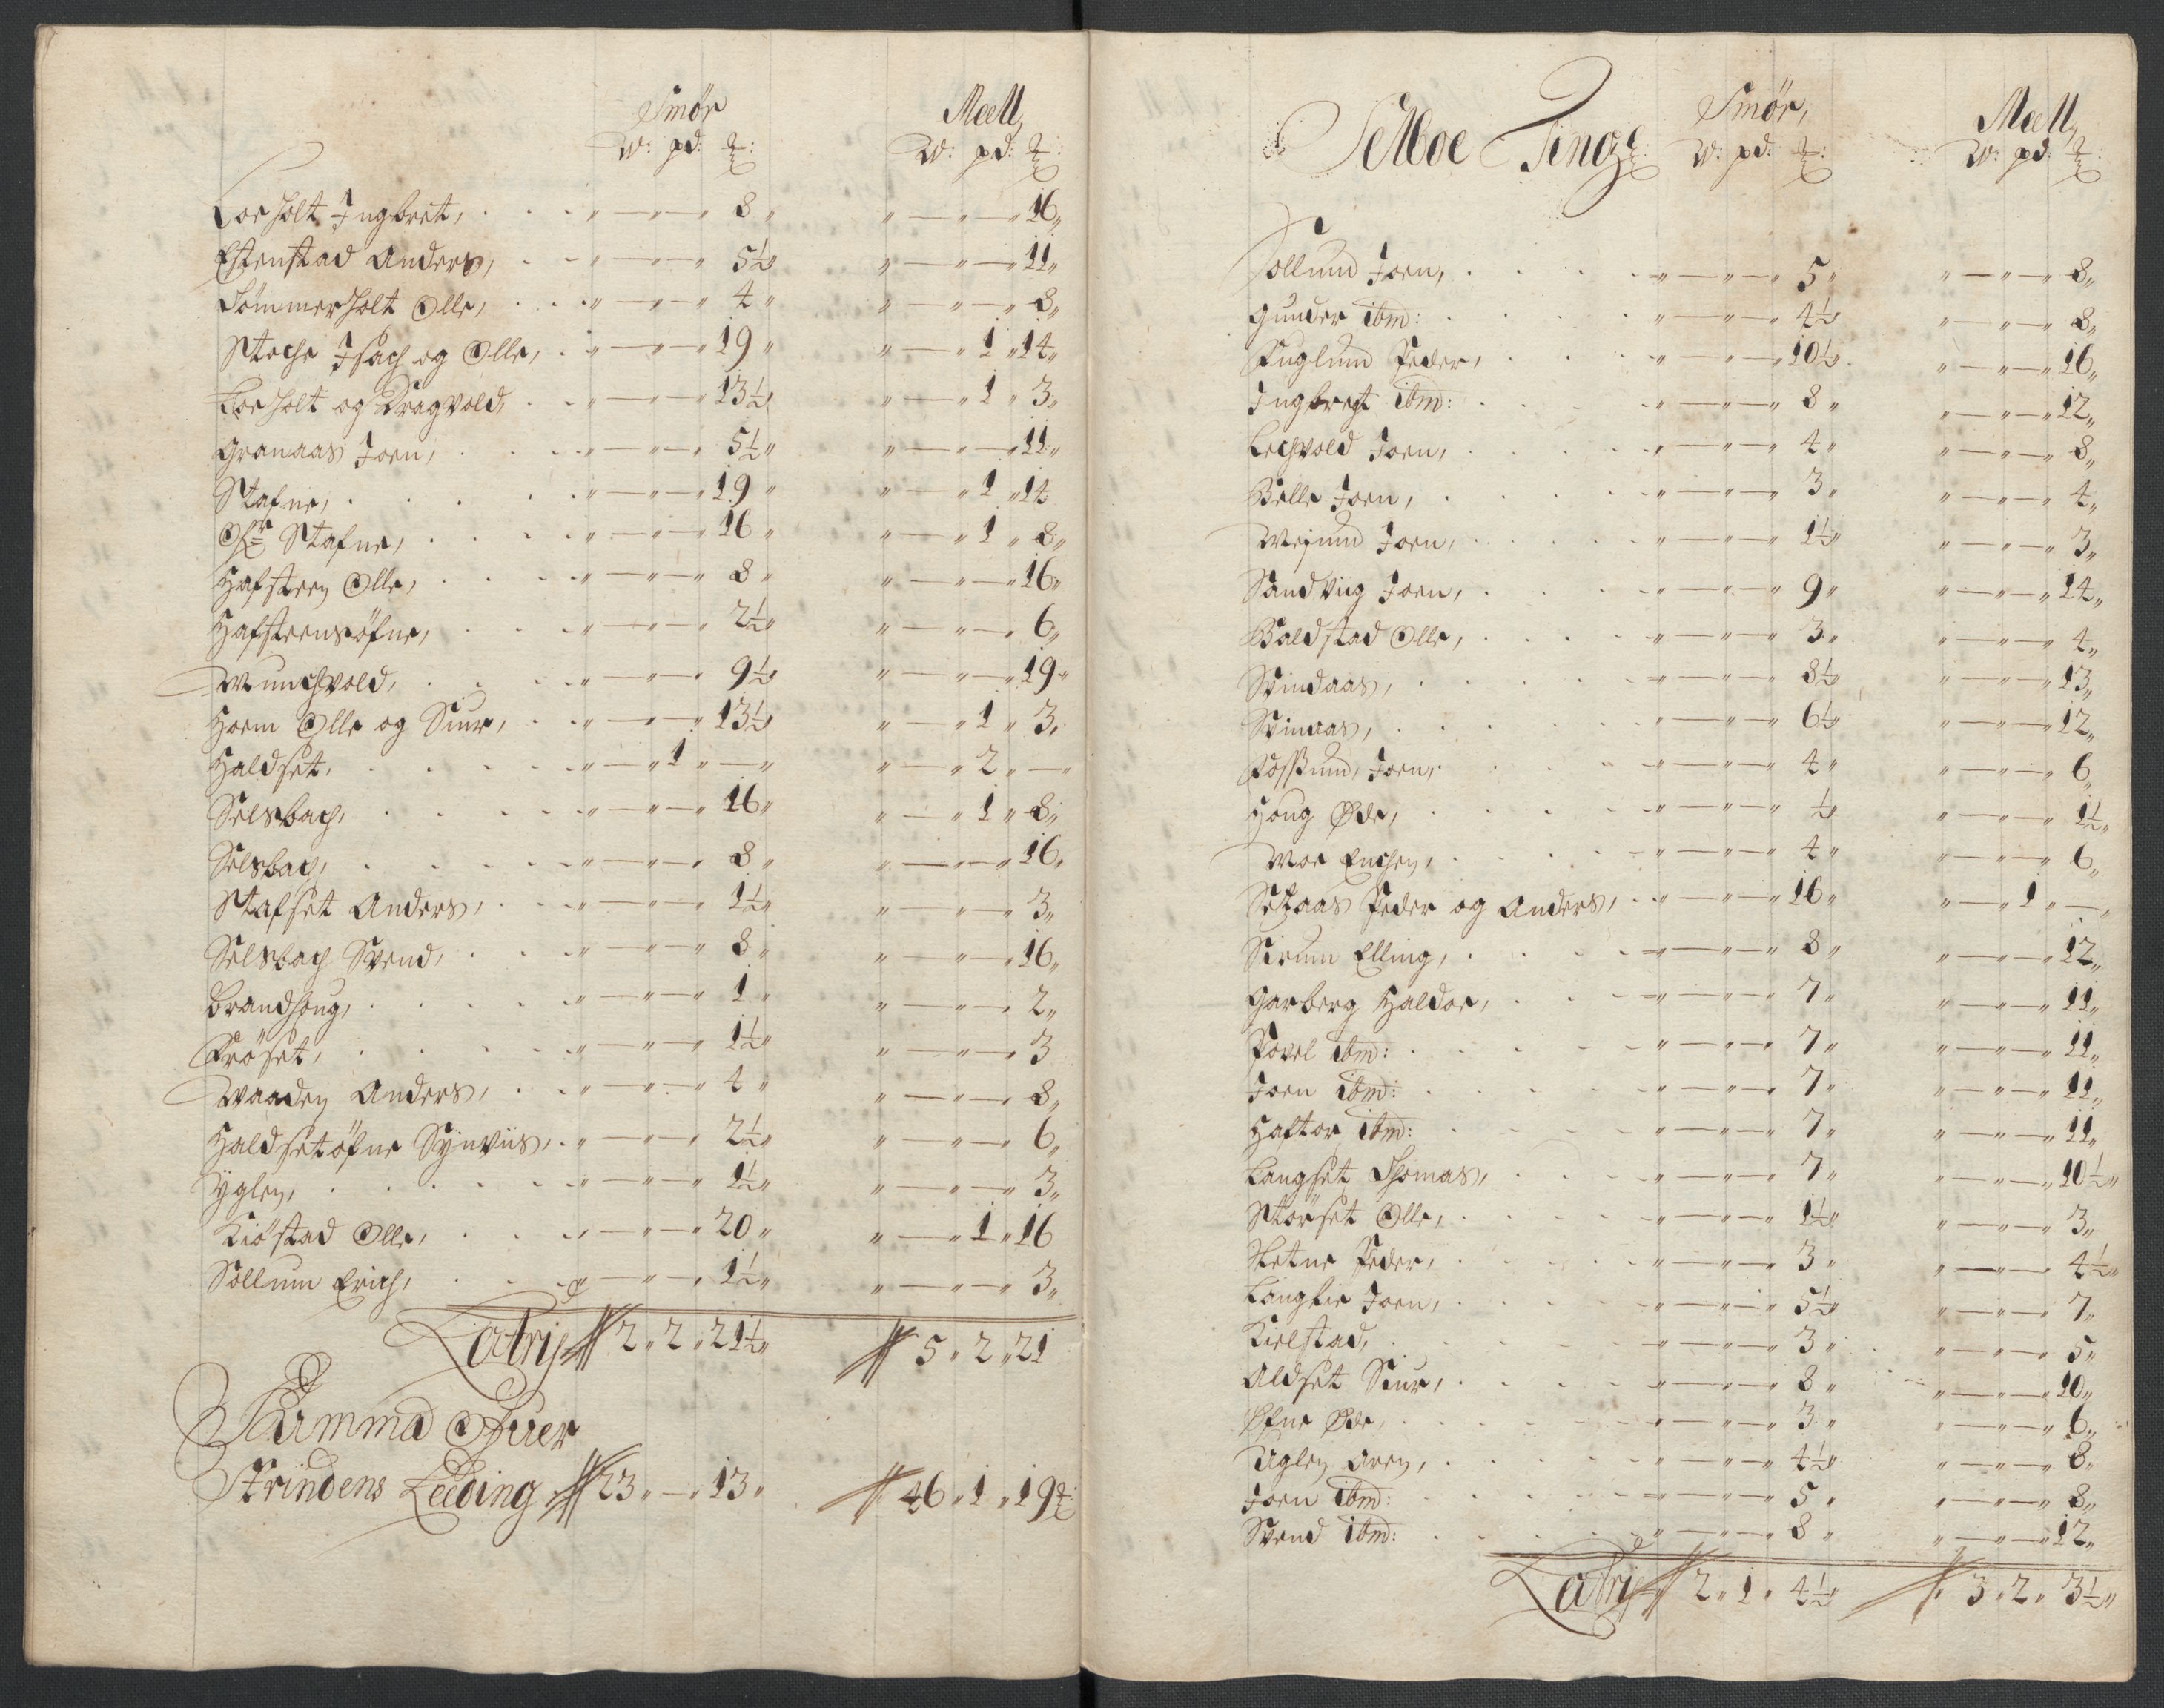 Smør Meell
W: pd: ℔: W: pd: ℔:
Lorholt Ingbret, „ — „ — „ 8 „ „ — „ — „ 16 „
Estenstad Anders, „ — „ — „ 5½ „ „ — „ — „ 11 „
Sommerholt Olle, „ — „ — „ 4 „ „ — „ — „ 8 „
Stoche Isach og Olle, „ — „ — „ 19 „ „ — „ 1 „ 14 „
Lorholt og Dragvold, „ — „ — „ 13½ „ „ — „ 1 „ 3 „
Granaas Joen, „ — „ — „ 5½ „ „ — „ — „ 11 „
Stafne, „ — „ — „ 19 „ „ — „ 1 „ 14
Stafne, „ — „ — „ 16 „ „ — „ 1 „ 8 „
Hafsteen Olle, „ — „ — „ 8 „ „ — „ — „ 16 „
Hafsteensöfne, „ — „ — „ 2½ „ „ — „ — „ 6 „
Munchvold, „ — „ — „ 9½ „ „ — „ — „ 19 „
Hoem Olle og Siur, „ — „ — „ 13½ „ „ — „ 1 „ 3 „
Haldset, „ — „ 1 „ — „ „ — „ 2 „ — „
Selsbach, „ — „ — „ 16 „ „ — „ 1 „ 8 „
Selsbach, „ — „ — „ 8 „ „ — „ — „ 16 „
Stafset Anders, „ — „ — „ 1½ „ „ — „ — „ 3 „
Selsbach Svend, „ — „ — „ 8 „ „ — „ — „ 16 „
Brandhoug, „ — „ — „ 1 „ „ — „ — „ 2 „
Fröset, „ — „ — „ 1½ „ „ — „ — „ 3
Waaden Anders, „ — „ — „ 4 „ „ — „ — „ 8 „
Haldsetöfne Synviis, „ — „ — „ 2½ „ „ — „ — „ 6 „
Yglen, „ — „ — „ 1½ „ „ — „ — „ 3 „
Kiöstad Olle, „ — „ — „ 20 „ „ — „ 1 „ 16
Sollum Erich, „ — „ — „ 1½ „ „ — „ — „ 3 „
Latrij 2 „ 2 „ 21½ „ 5 „ 2 „ 21
Summa Ofuer
Strindens Leeding 23 „ — „ 13 „ 46 „ 1 „ 19 ℔:
Selboe Tinge: Smør, Meell,
W: pd: ℔: W: pd: ℔:
Sollund Joen, „ — „ — „ 5 „ „ — „ — „ 8 „
Gunder ibm: „ — „ — „ 4½ „ „ — „ — „ 8 „
Fuglum Peder, „ — „ — „ 10½ „ „ — „ — „ 16 „
Ingbregt ibm: „ — „ — „ 8 „ „ — „ — „ 12 „
Lechvold Joen, „ — „ — „ 4 „ „ — „ — „ 8 „
Belle Joen, „ — „ — „ 3 „ „ — „ — „ 4 „
Joen, „ — „ — „ 1½ „ „ — „ — „ 3 „
Sandviig Joen, „ — „ — „ 9 „ „ — „ — „ 14 „
Baldstad Olle, „ — „ — „ 3 „ „ — „ — „ 4 „
Svindaas, „ — „ — „ 8½ „ „ — „ — „ 13 „
Svinaas, „ — „ — „ 6½ „ „ — „ — „ 12 „
Fossum, Joen, „ — „ — „ 4 „ „ — „ — „ 6
Houg Øde, „ — „ — „ ½ „ — „ — „ 1½ „
Moe Enchen, „ — „ — „ 4 „ „ — „ — „ 6 „
Setaas Peder og Anders, „ — „ — „ 16 „ „ — „ 1 „ — „
Sirum Elling, „ — „ — „ 8 „ „ — „ — „ 12 „
Garberg Haldor, „ — „ — „ 7 „ „ — „ — „ 11 „
Povel ibm: „ — „ — „ 7 „ „ — „ — „ 11 „
Joen ibm: „ — „ — „ 7 „ „ — „ — „ 11 „
Haftor ibm: „ — „ — „ 7 „ „ — „ — „ 11 „
Langset Thomas, „ — „ — „ 7 „ „ — „ — „ 10½ „
Störset Olle, „ — „ — „ 1½ „ „ — „ — „ 3 „
Sletne Peder, „ — „ — „ 3 „ „ — „ — „ 4½ „
Langlie Joen, „ — „ — „ 5½ „ „ — „ — „ 7 „
Kielstad, „ — „ — „ 3 „ „ — „ — „ 5 „
Aldset Siur, „ — „ — „ 8 „ „ — „ — „ 10 „
Öfne Øde, „ — „ — „ 3 „ „ — „ — „ 6 „
Uglen Aren, „ — „ — „ 4½ „ „ — „ — „ 8 „
Joen ibm: „ — „ — „ 5 „ „ — „ — „ 8 „
Svend ibm: „ — „ — „ 8 „ „ — „ — „ 12 „
Latrij 2 „ 1 „ 4½ „ 3 „ 2 „ 3½ „